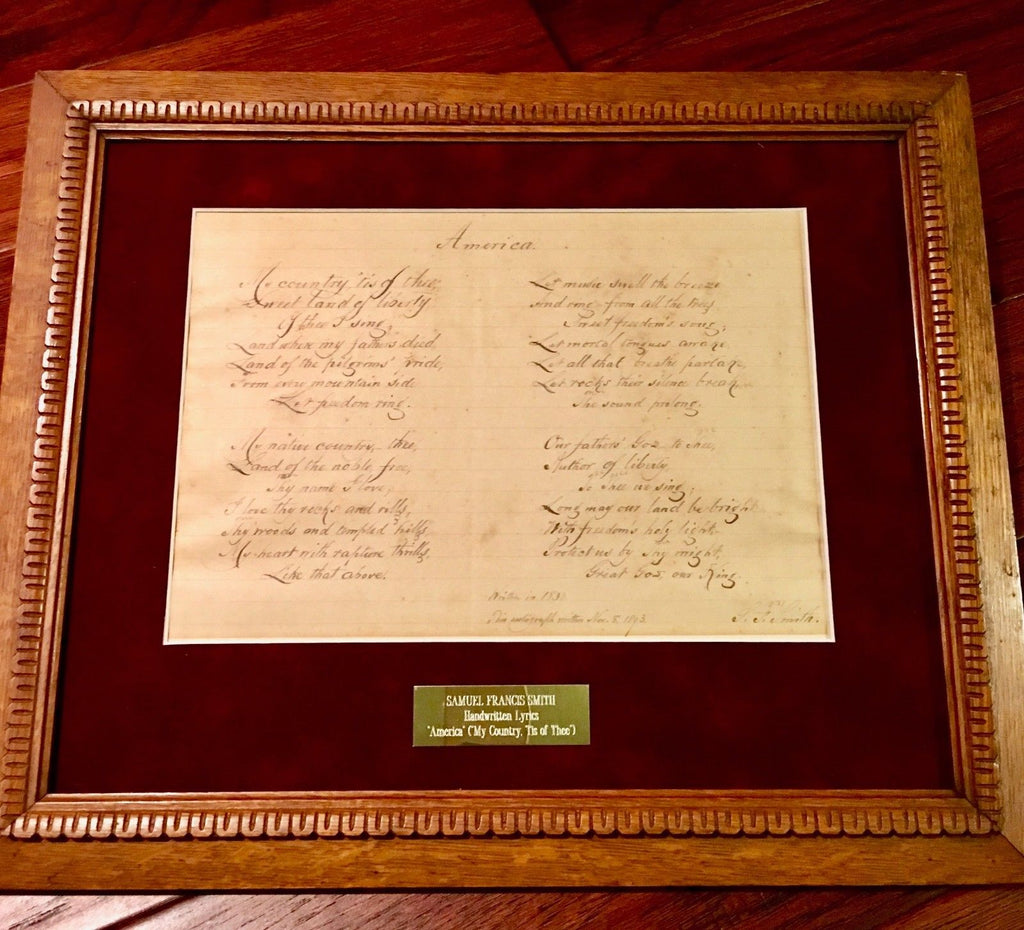 America.
My country 'tis of thee,
Sweet land of liberty
Of thee I sing,
Land where my fathers died
Land of the pilgrims' pride,
From every mountain side
Let freedom ring.
My native country, thee,
Land of the noble free,
Thy name I love;
I love thy rocks and rills,
Thy woods and templed hills,
My heart with rapture thrills
Like that above.
Let music swell the breeze
And ring from all the trees
Sweet freedom's song;
Let mortal tongues awake
Let all that breathe partake,
Let rocks their silence break,
The sound prolong.
Our fathers' God to thee,
Author of liberty,
To thee we sing;
Long may our land be bright
With freedom's holy light
Protect us by thy might,
Great God, our King.
Written in 1832
This autograph written Nov. 8. 1893.
S. F. Smith.
SAMUEL FRANCIS SMITH
Handwritten Lyrics
"America" ("My Country, 'Tis of Thee")